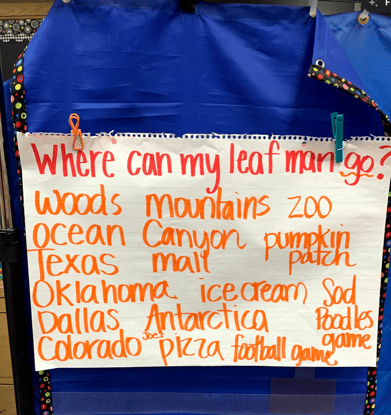 Where can my leaf man go?
woods mountains zoo
ocean Canyon pumpkin patch
Texas mall
Oklahoma ice cream Sod Poodles game
Dallas Antarctica
Colorado Joe's pizza football game